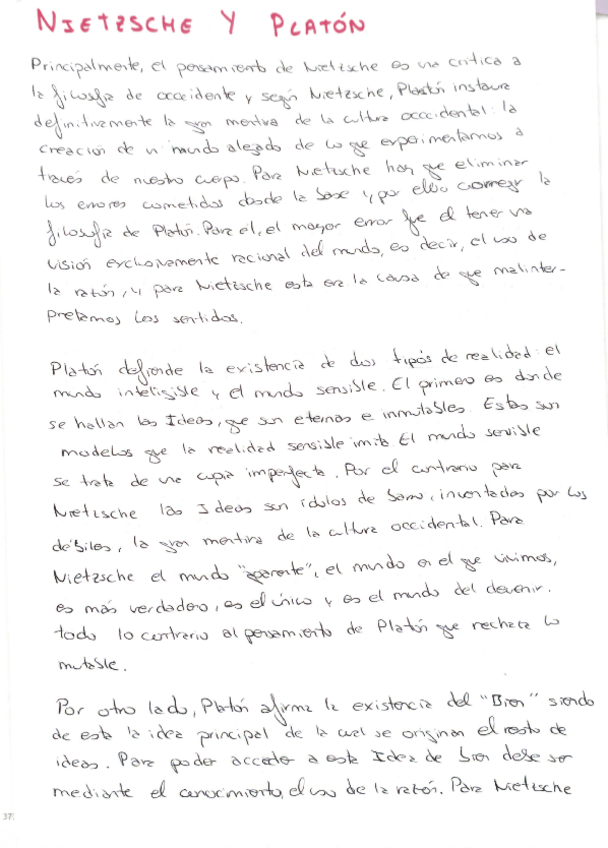 NIETZSCHE Y PLATÓN
Principalmente, el pensamiento de Nietzsche es una critica a
la filosofia de occidente y según Nietzsche, Platón instaura
definitivamente la gran mentira de la cultura occidental: la
creación de un mundo alejado de lo que experimentamos a
través de nuestro cuerpo. Para Nietzsche hay que eliminar
los errores cometidos desde la base y por ello corregir la
filosofia de Platón. Para el, el mayor error fue el tener una
visión exclusivamente racional del mundo, es decir, el uso de
la razón, y para Nietzsche esta era la causa de que malinter-
pretemos los sentidos.
Platón defiende la existencia de dos tipos de realidad: el
mundo inteligible y el mundo sensible. El primero es donde
se hallan las Ideas, que son eternas e inmutables. Estas son
modelos que la realidad sensible imita El mundo sensible
se trata de una copia imperfecta. Por el contrario para
Nietzsche las Ideas son ídolos de barro, inventadas por los
débiles, la gran mentira de la cultura occidental. Para
Nietzsche el mundo "aparente", el mundo en el que vivimos,
es más verdadero, es el único y es el mundo del devenir.
todo lo contrario al pensamiento de Platón que rechaza lo
mutable.
Por otro lado, Platón afirma la existencia del "Bien" siendo
de esta la idea principal de la cual se originan el resto de
ideas. Para poder acceder a esta Idea de bien debe ser
mediante el conocimiento, el uso de la razón. Para Nietzsche